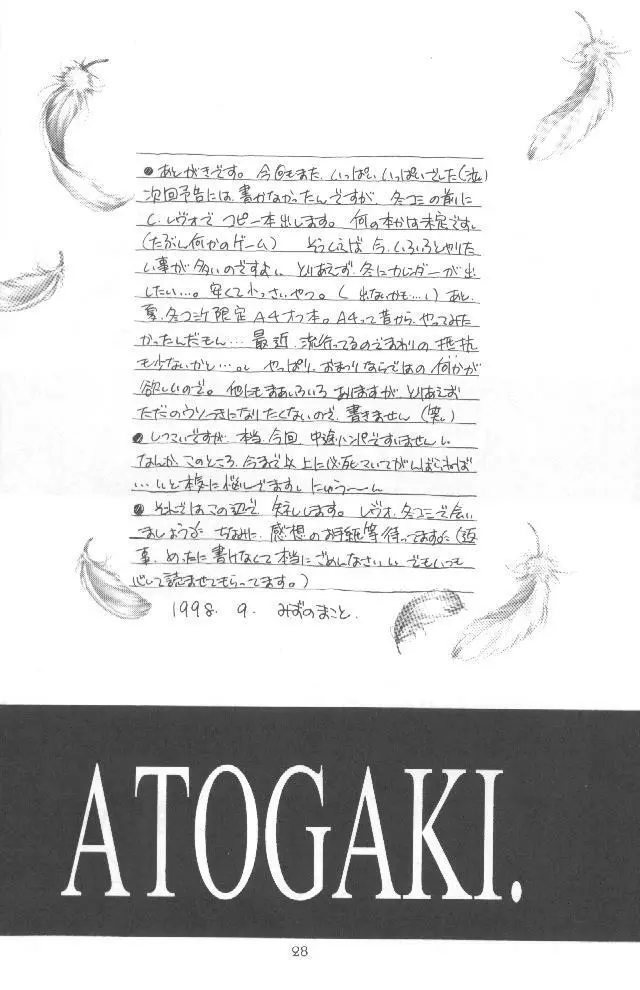 ●あとがきです。今回もまた、いっぱいいっぱいでした(泣)
次回予告には書かなかったんですが、冬コミの前に
C.レヴォでコピー本出します。何の本かは未定です。
(たぶん何かのゲーム) そういえば今、いろいろとやりた
い事が多いのですよ。とりあえず、冬にカレンダーが出
したい…。安くて小っさいやつ。(出ないかも…)あと、
夏、冬コミケ限定A4オフ本。A4って昔から、やってみた
かったんだもん…最近、流行ってるのでまわりの抵抗
も少ないかと…。やっぱり、おまつりならではの何かが
欲しいので。他にもまあいろいろありますが、とりあえず
ただのウソつきになりたくないので、書きません(笑)
●しつこいですが、本当、今回、中途ハンパですいません。
なんか、このところ、今まで以上に必死こいてがんばらねば
…いと本気に悩んでます。にゅう〜〜ん
●それではこの辺で、失礼します。レヴォ、冬コミで会い
ましょう ちなみに、感想のお手紙等待ってます(返
事、めったに書けなくて本当にごめんなさい でもいつも
心して読ませてもらってます。)
1998. 9. みずのまこと.
ATOGAKI.
28